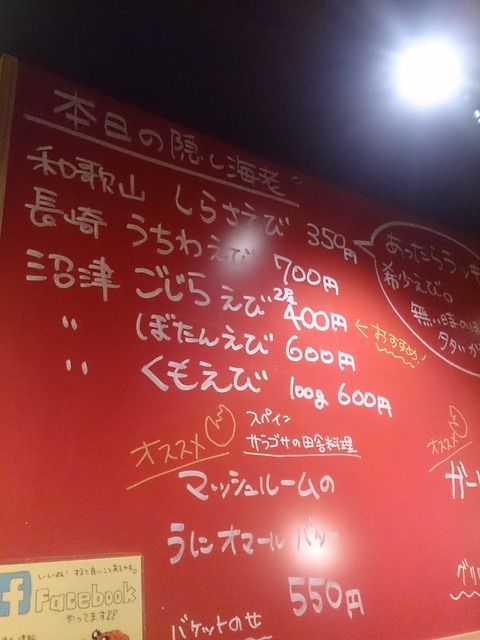 本日の隠し海老
和歌山 しらさえび 350円
長崎 うちわえび 700円
沼津 ごじらえび 2尾 400円 ←おすすめ!
〃 ぼたんえび 600円
〃 くもえび 100g 600円
あったらラッキ
希少えび。
無い時のほ
タタいか
オススメ
スペイン
サラゴサの田舎料理
マッシュルームの
うにオマールバター
550円
バケットのせ
オススメ
ガー
グリ
いいね!すると良いことあるかも。
f Facebook
やってます!!